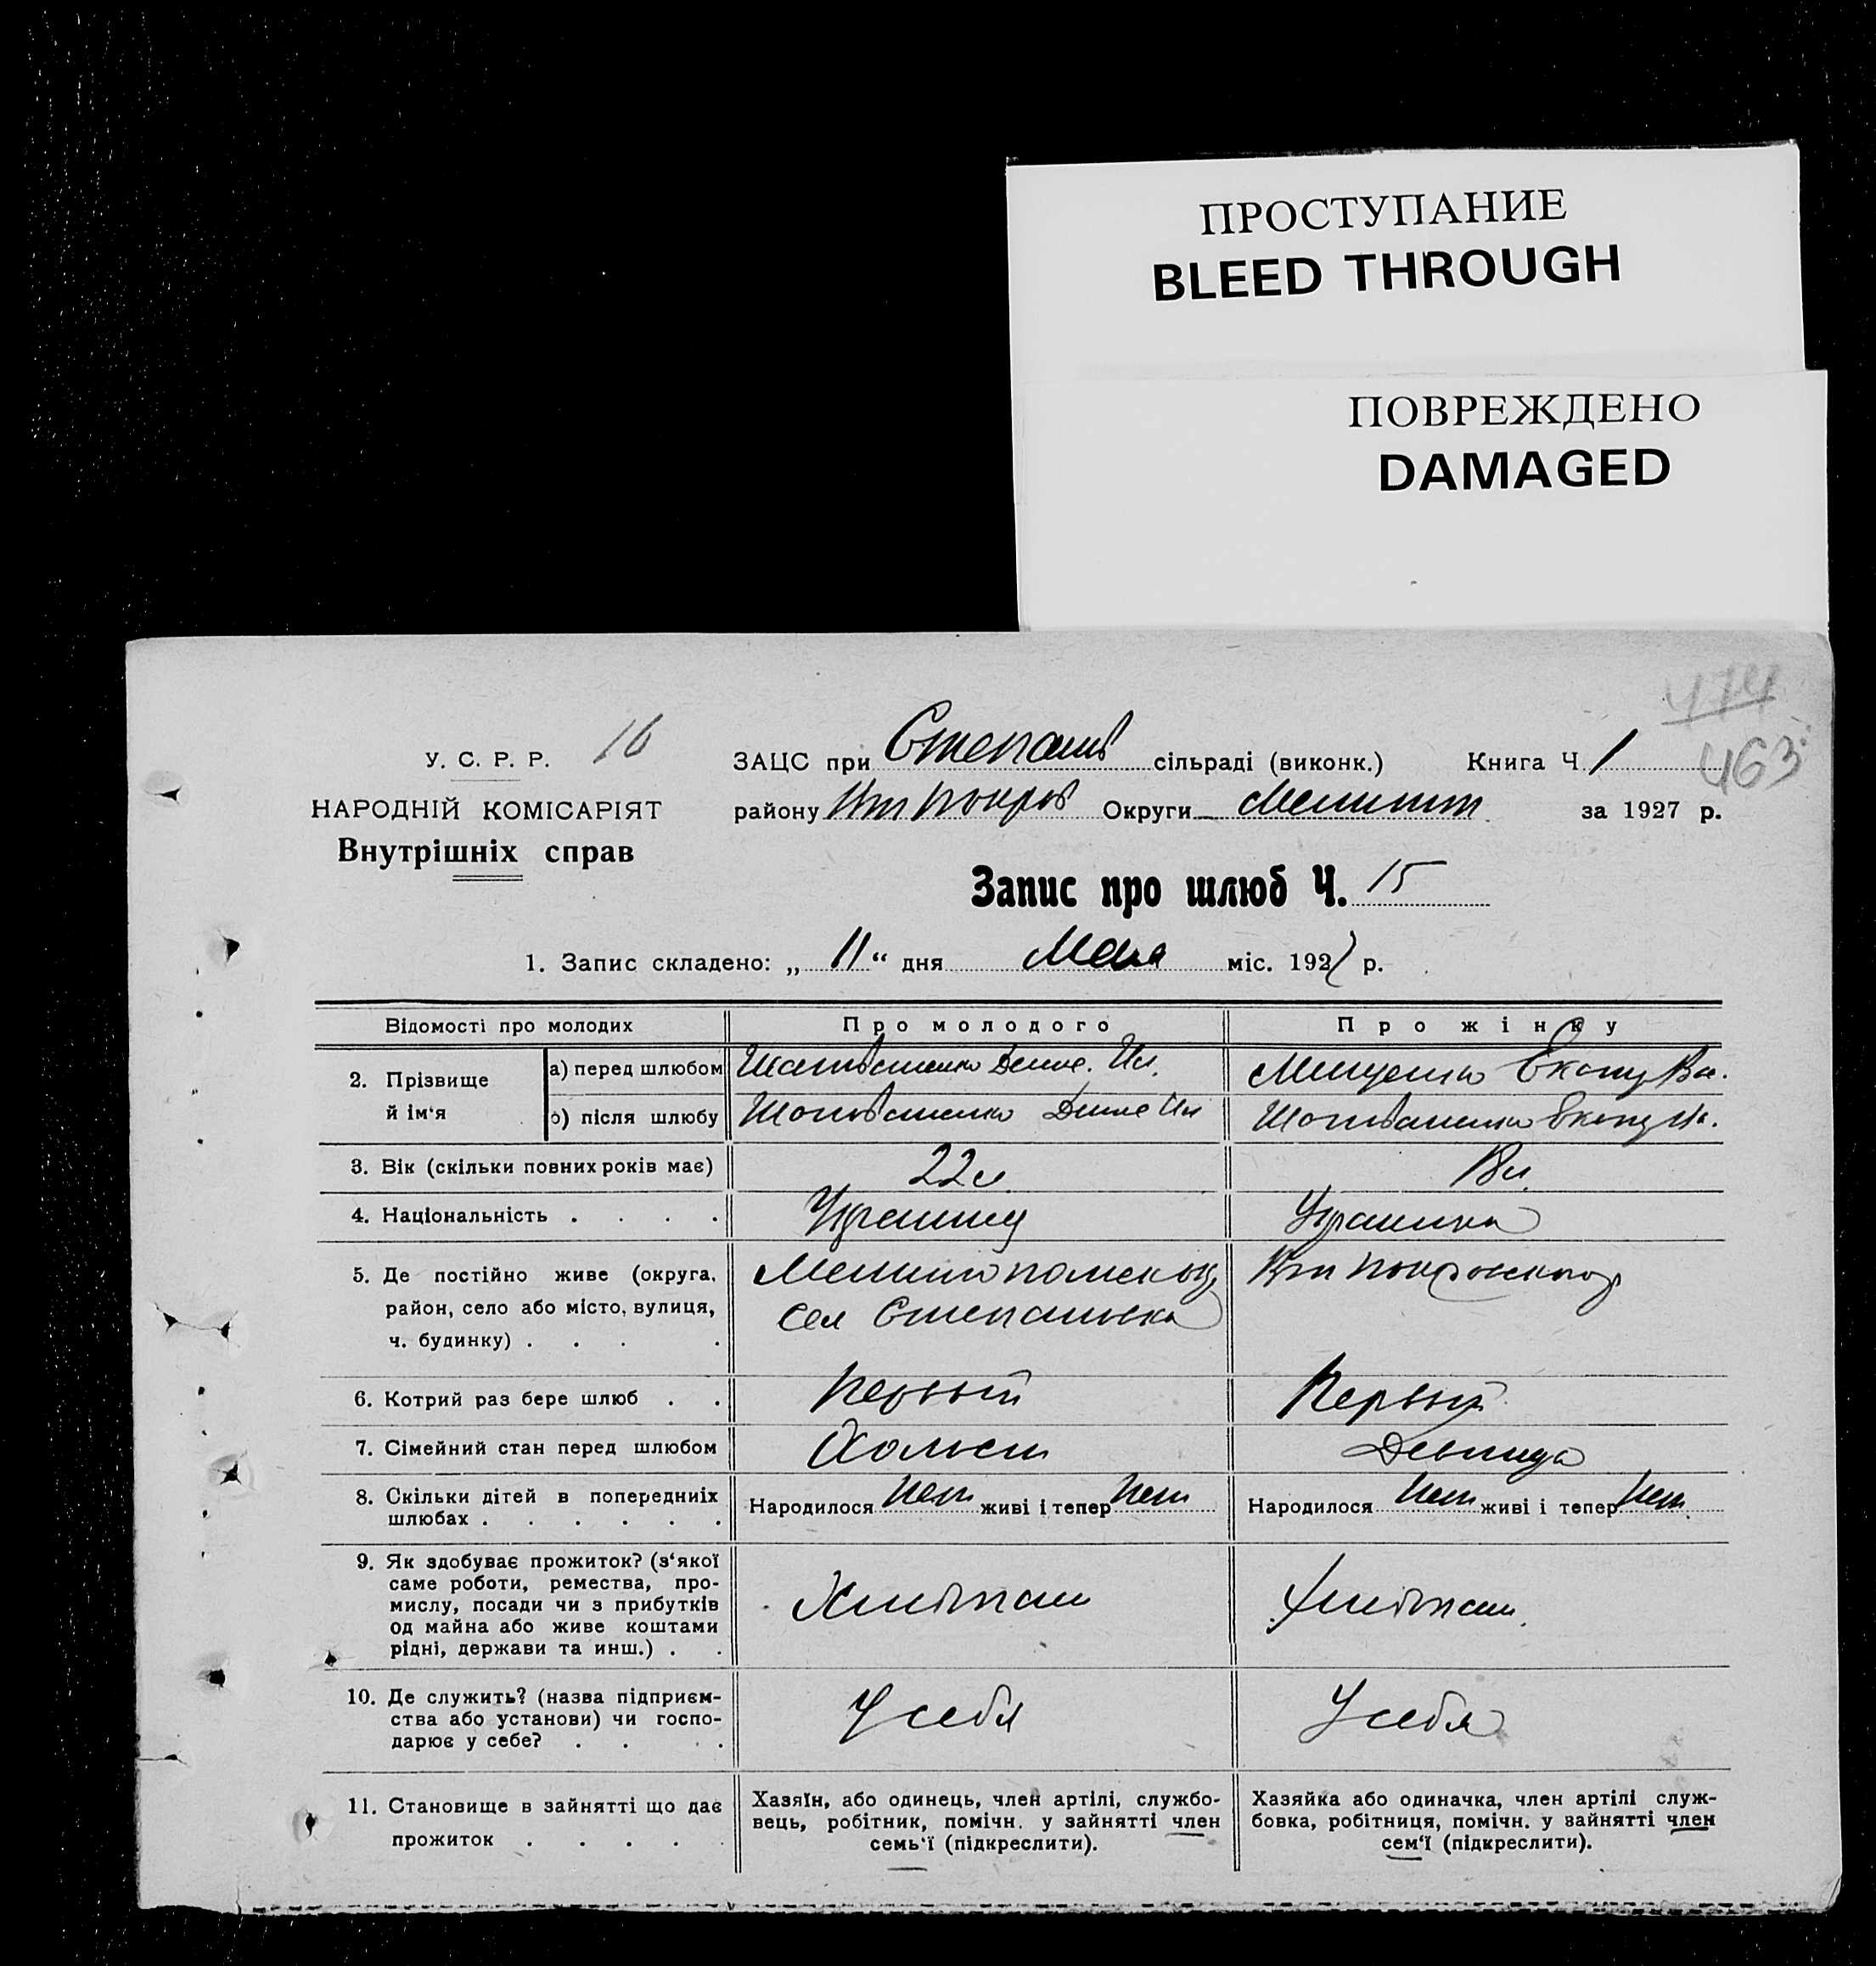 ПРОСТУПАНИЕ
BLEED THROUGH
ПОВРЕЖДЕНО
DAMAGED
414
463
У. С. Р. Р. 16
НАРОДНІЙ КОМІСАРІЯТ
Внутрішніх справ
ЗАЦС при Степанів сільраді (виконк.) Книга Ч 1
району Округи Мелитт за 1927 р.
Запис про шлюб Ч. 15
1. Запис складено: „ 11 “ дня Мая міс. 1927 р.
Відомості про молодих Про молодого Про жінку
2. Прізвище й ім‘я
а) перед шлюбом
б) після шлюбу
3. Вік (скільки повних років має) 22 л. 18 л.
4. Національність . . . . Украинец Украинка
5. Де постійно живе (округа, Мелитопольск
район, село або місто, вулиця, Сел Степановка
ч. будинку) . . . .
6. Котрий раз бере шлюб . . Первый Первый
7. Сімейний стан перед шлюбом Холост Девица
8. Скільки дітей в попередниіх Народилося Нет живі і тепер Нет Народилося Нет живі і тепер Нет
шлюбах . . . . . .
9. Як здобуває прожиток? (з‘якої
саме роботи, ремества, про-
мислу, посади чи з прибутків Хлебопаш Хлебопаш.
од майна або живе коштами
рідні, держави та инш.) . .
10. Де служить? (назва підприєм-
ства або установи) чи госпо- У себя У себя
дарює у себе? . . . .
11. Становище в зайнятті що дає
прожиток . . . . .
Хазяїн, або одинець, член артілі, службо-
вець, робітник, помічн. у зайнятті член
семь‘ї (підкреслити).
Хазяйка або одиначка, член артілі служ-
бовка, робітниця, помічн. у зайнятті член
сем‘ї (підкреслити).